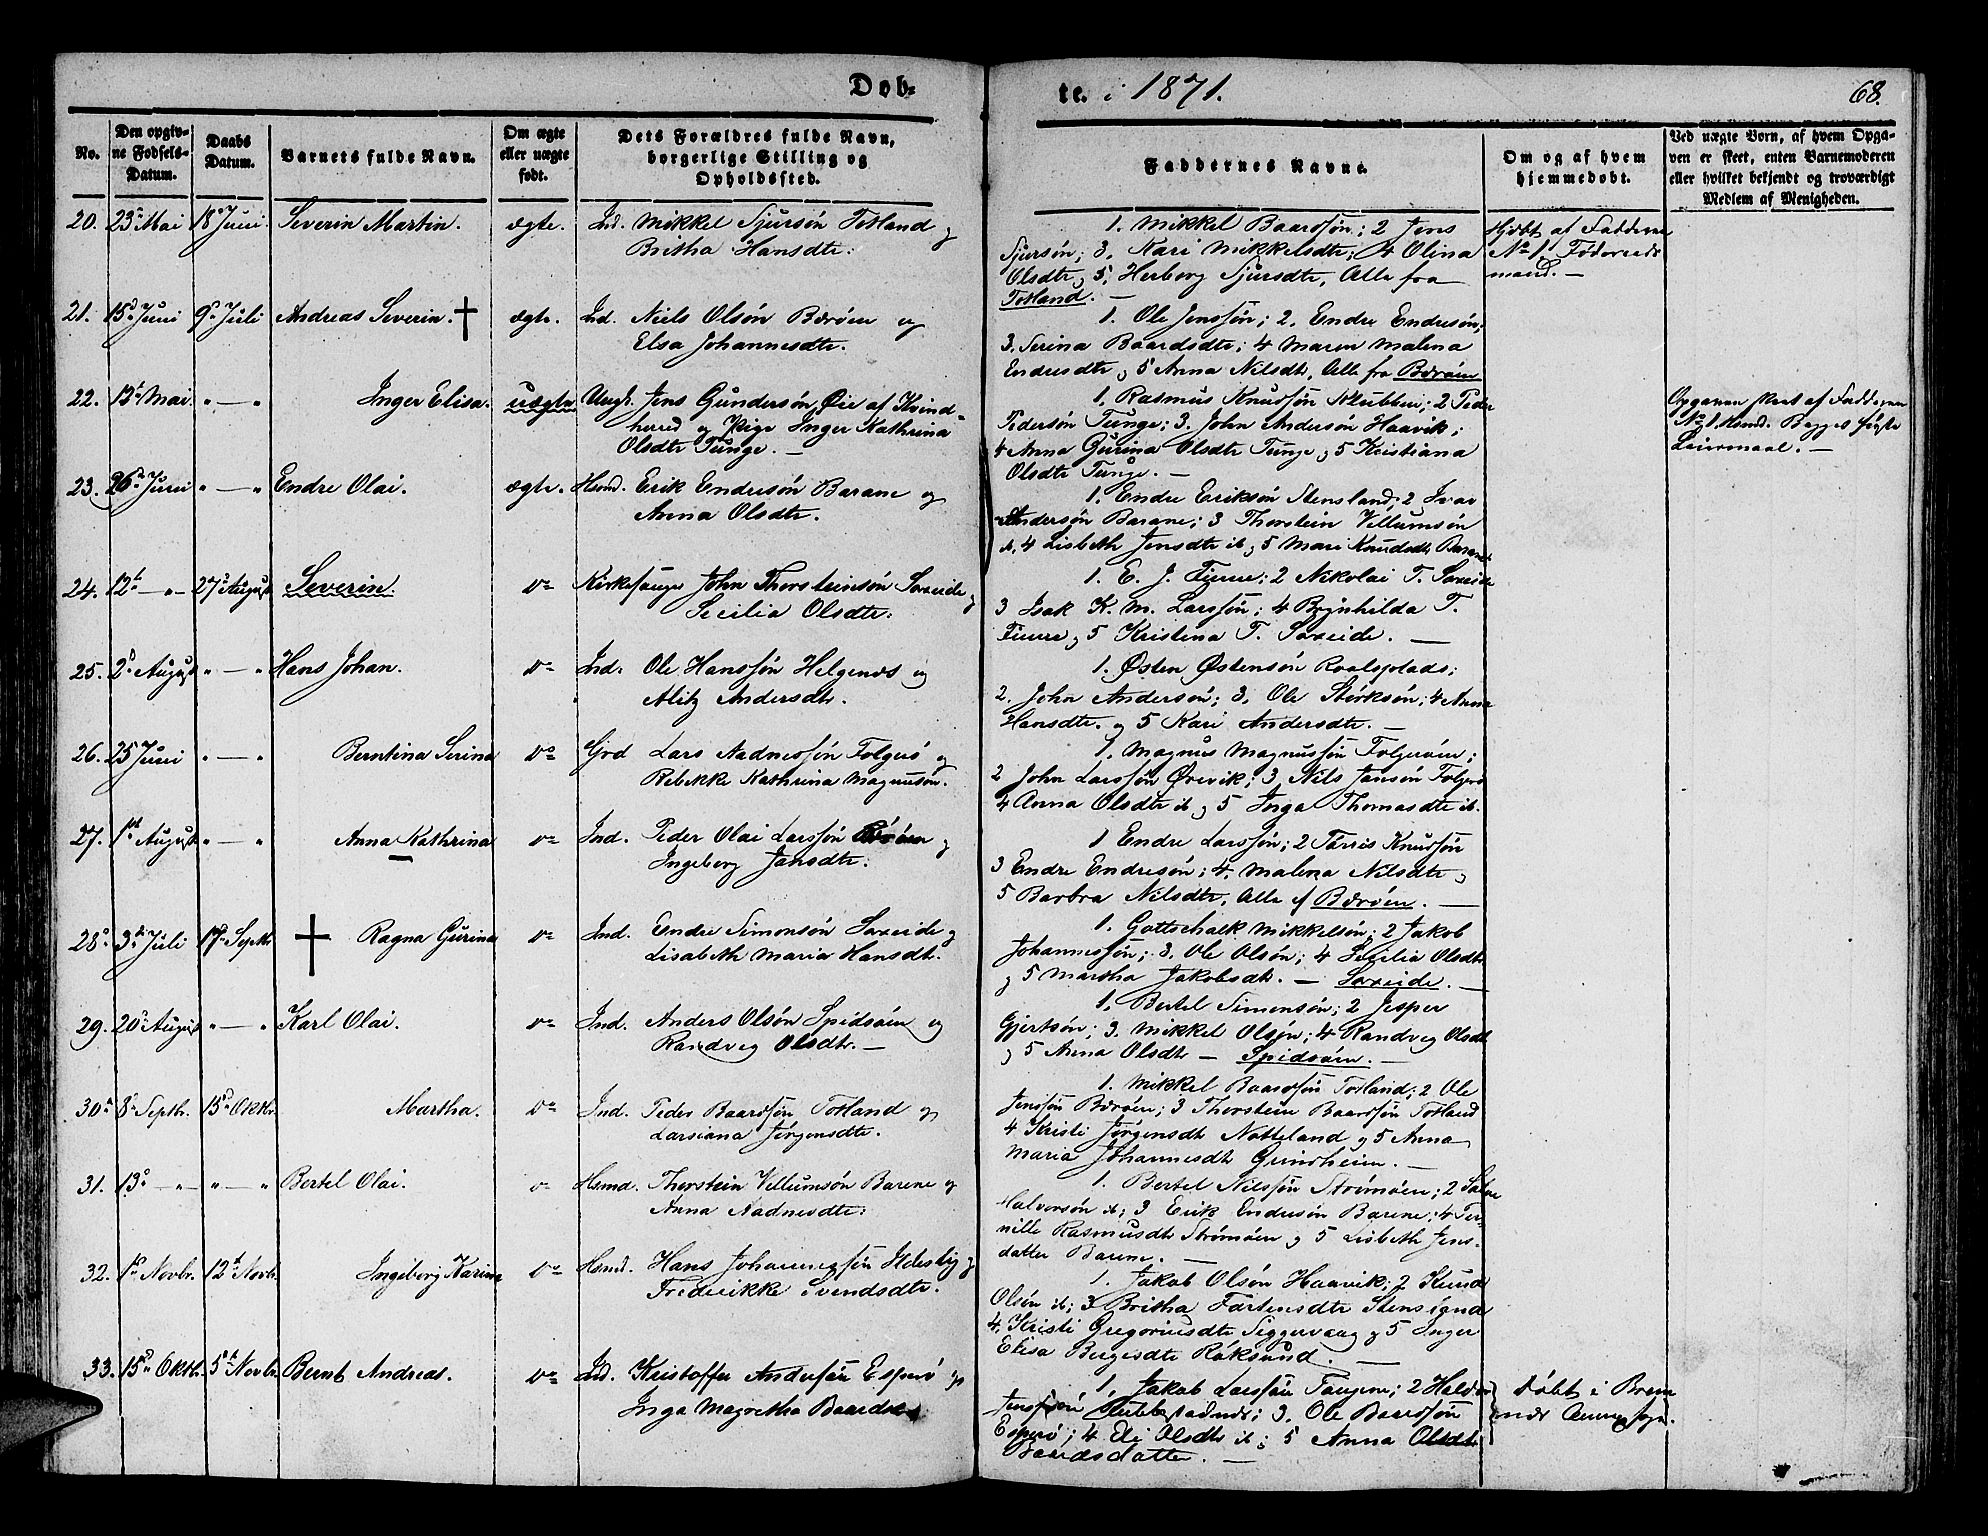 Døb-
te. i 1871.
68.
No.
Den opgiv-
ne Fødsels-
Datum.
Daabs
Datum.
Barnets fulde Navn.
Om ægte
eller uægte
født.
Dets Forældres fulde Navn,
borgerlige Stilling og
Opholdssted.
Faddernes Navne.
Om og af hvem
hjemmedøbt.
Ved uægte Børn, af hvem Opga-
ven er skeet, enten Barnemoderen
eller hvilket bekjendt og troværdigt
Medlem af Menigheden.
20. 23de Mai 18de Juni Severin Martin. ægte. Ind. Mikkel Sjursøn Totland og
Britha Hansdtr.
1. Mikkel Baardsøn; 2 Jens
Sjursøn; 3. Kari Mikkelsdtr; 4 Olina
Olsdtr og 5. Herborg Sjursdtr, Alle fra
Totland. —
Hjdbt af Fadderne
No 1. Føderaads
mand. —
21. 15de Juni 9de Juli Andreas Severin. † ægte. Ind. Niels Olsøn Bærøen og
Elsa Johannesdtr.
1. Ole Jenssøn; 2. Endre Endresøn;
3. Serina Baardsdtr; 4 Maren Malena
Endresdtr og 5 Anna Nilsdtr, Alle fra Bærøen
22. 13de Mai. " — " Inger Elisa. uægte Ungk. Jens Gundersøn Øie af Kvind-
herred og Pige Inger Kathrina
Olsdtr Tunge. —
1. Rasmus Knudsøn Klubben; 2 Peder
Pedersøn Tunge; 3. John Andersøn Haavik;
4 Anna Gurina Olsdtr Tunge og 5 Kristiana
Olsdtr Tunge. —
Opgaven skeet af Fadderne
No 1. Hmd. Begges første
Leiermaal. —
23. 26de Juni " — " Endre Olai. ægte. Hsmd. Erik Endresøn Barane og
Anna Olsdtr.
1. Endre Eriksøn Stensland; 2 Ivar
Andersøn Barane; 3 Thorstein Villumsøn
ib, 4 Lisbeth Jensdtr ib og 5 Mari Knudsdtr Barane
24. 12te — " — 27de August Severin. do Kirkesanger John Thorsteinsøn Saxeide og
Secilia Olsdtr.
1. E. J. Fjerre; 2 Nikolai T. Saxeide
3 Isak K. M. Larssøn; 4 Brynhilda T.
Fjerre og 5 Kristena T. Saxeide. —
25. 2de August " — " Hans Johan. do Ind. Ole Hanssøn Helgenæs og
Alitz Andersdtr.
1. Østen Østensøn Roalsplads;
2. John Andersøn; 3. Ole Størksøn; 4 Anna
Hansdtr. og 5 Kari Andersdtr. —
26. 25 Juni " — " Berntina Serina do Grd Lars Aadnessøn Folgerø og
Rebekke Kathrina Magnusdn.
1. Magnus Magnussøn Folgerøen;
2 John Larssøn Ørevik; 3 Nils Jansøn Folgerø
4 Anna Olsdtr ib og 5 Inga Thomasdtr ib.
27. 1ste August " — " Anna Kathrina do Ind. Peder Olai Larssøn Bærøen og
Ingeborg Jansdtr.
1 Endre Larssøn; 2 Tørris Knudsøn
3 Endre Endresøn; 4. Malena Nilsdtr og
5 Barbra Nilsdtr, Alle f Bærøen. —
28. 3die Juli 17de Septbr † Ragna Gurina do Ind. Endre Simonsøn Saxeide og
Lisabeth Maria Hansdtr.
1. Gottschalk Mikkelsøn; 2 Jakob
Johannessøn; 3. Ole Olsøn; 4 Secilia Olsdtr
og 5 Martha Jakobsdtr. — Saxeide. —
29. 20de August " — " Karl Olai. do Ind. Anders Olsøn Spidsøen og
Randveg Olsdtr. —
1. Bertel Simonsøn; 2 Jesper
Gjertsøn; 3. Mikkel Olsøn; 4 Randveg Olsdtr
og 5 Anna Olsdtr — Spidsøen. —
30. 8de Septbr. 15de Oktbr. Martha. do Ind. Peder Baardsøn Totland og
Larsiana Jørgensdtr.
1. Mikkel Baardsøn Totland; 2 Ole
Jenssøn Bærøen; 3 Thorstein Baardsøn Totland
4 Kristi Jørgensdtr Natteland og 5 Anna
Maria Johannesdtr Grindheim. —
31. 13de — " — " — " Bertel Olai. do Hsmd. Thorstein Villumsøn Barene og
Anna Aadnesdtr.
1. Bertel Nilssøn Strømøen; 2
Halversøn ib; 3 Erik Endresøn Barene; 4 Per-
nille Rasmusdtr Strømøen og 5 Lisbeth Jens-
datter Barene. —
32. 1ste Novbr. 12te Novbr. Ingeborg Karine do Hsmd. Hans Johannessøn og
Frederikke Svendsdtr.
1. Jakob Olsøn Haavik; 2 Knud
Olsøn ib; 3 Britha Tørtensdtr
4. Kristi Gregoriusdtr Siggervaag og 5 Inger
Elisa Bergesdtr Røksund. —
33. 15de Oktbr. 5te Novbr. Bernt Andreas. do Ind. Kristoffer Andersøn Esperø og
Inga Magretha Baardsdtr
1. Jakob Larssøn; 2 Haldor
Jenssøn; 3. Ole Baardsøn
Esperø; 4. Eli Olsdtr ib; 5 Anna
Baardsdatter. —
Døbt i Brem
næs Annexsogn.